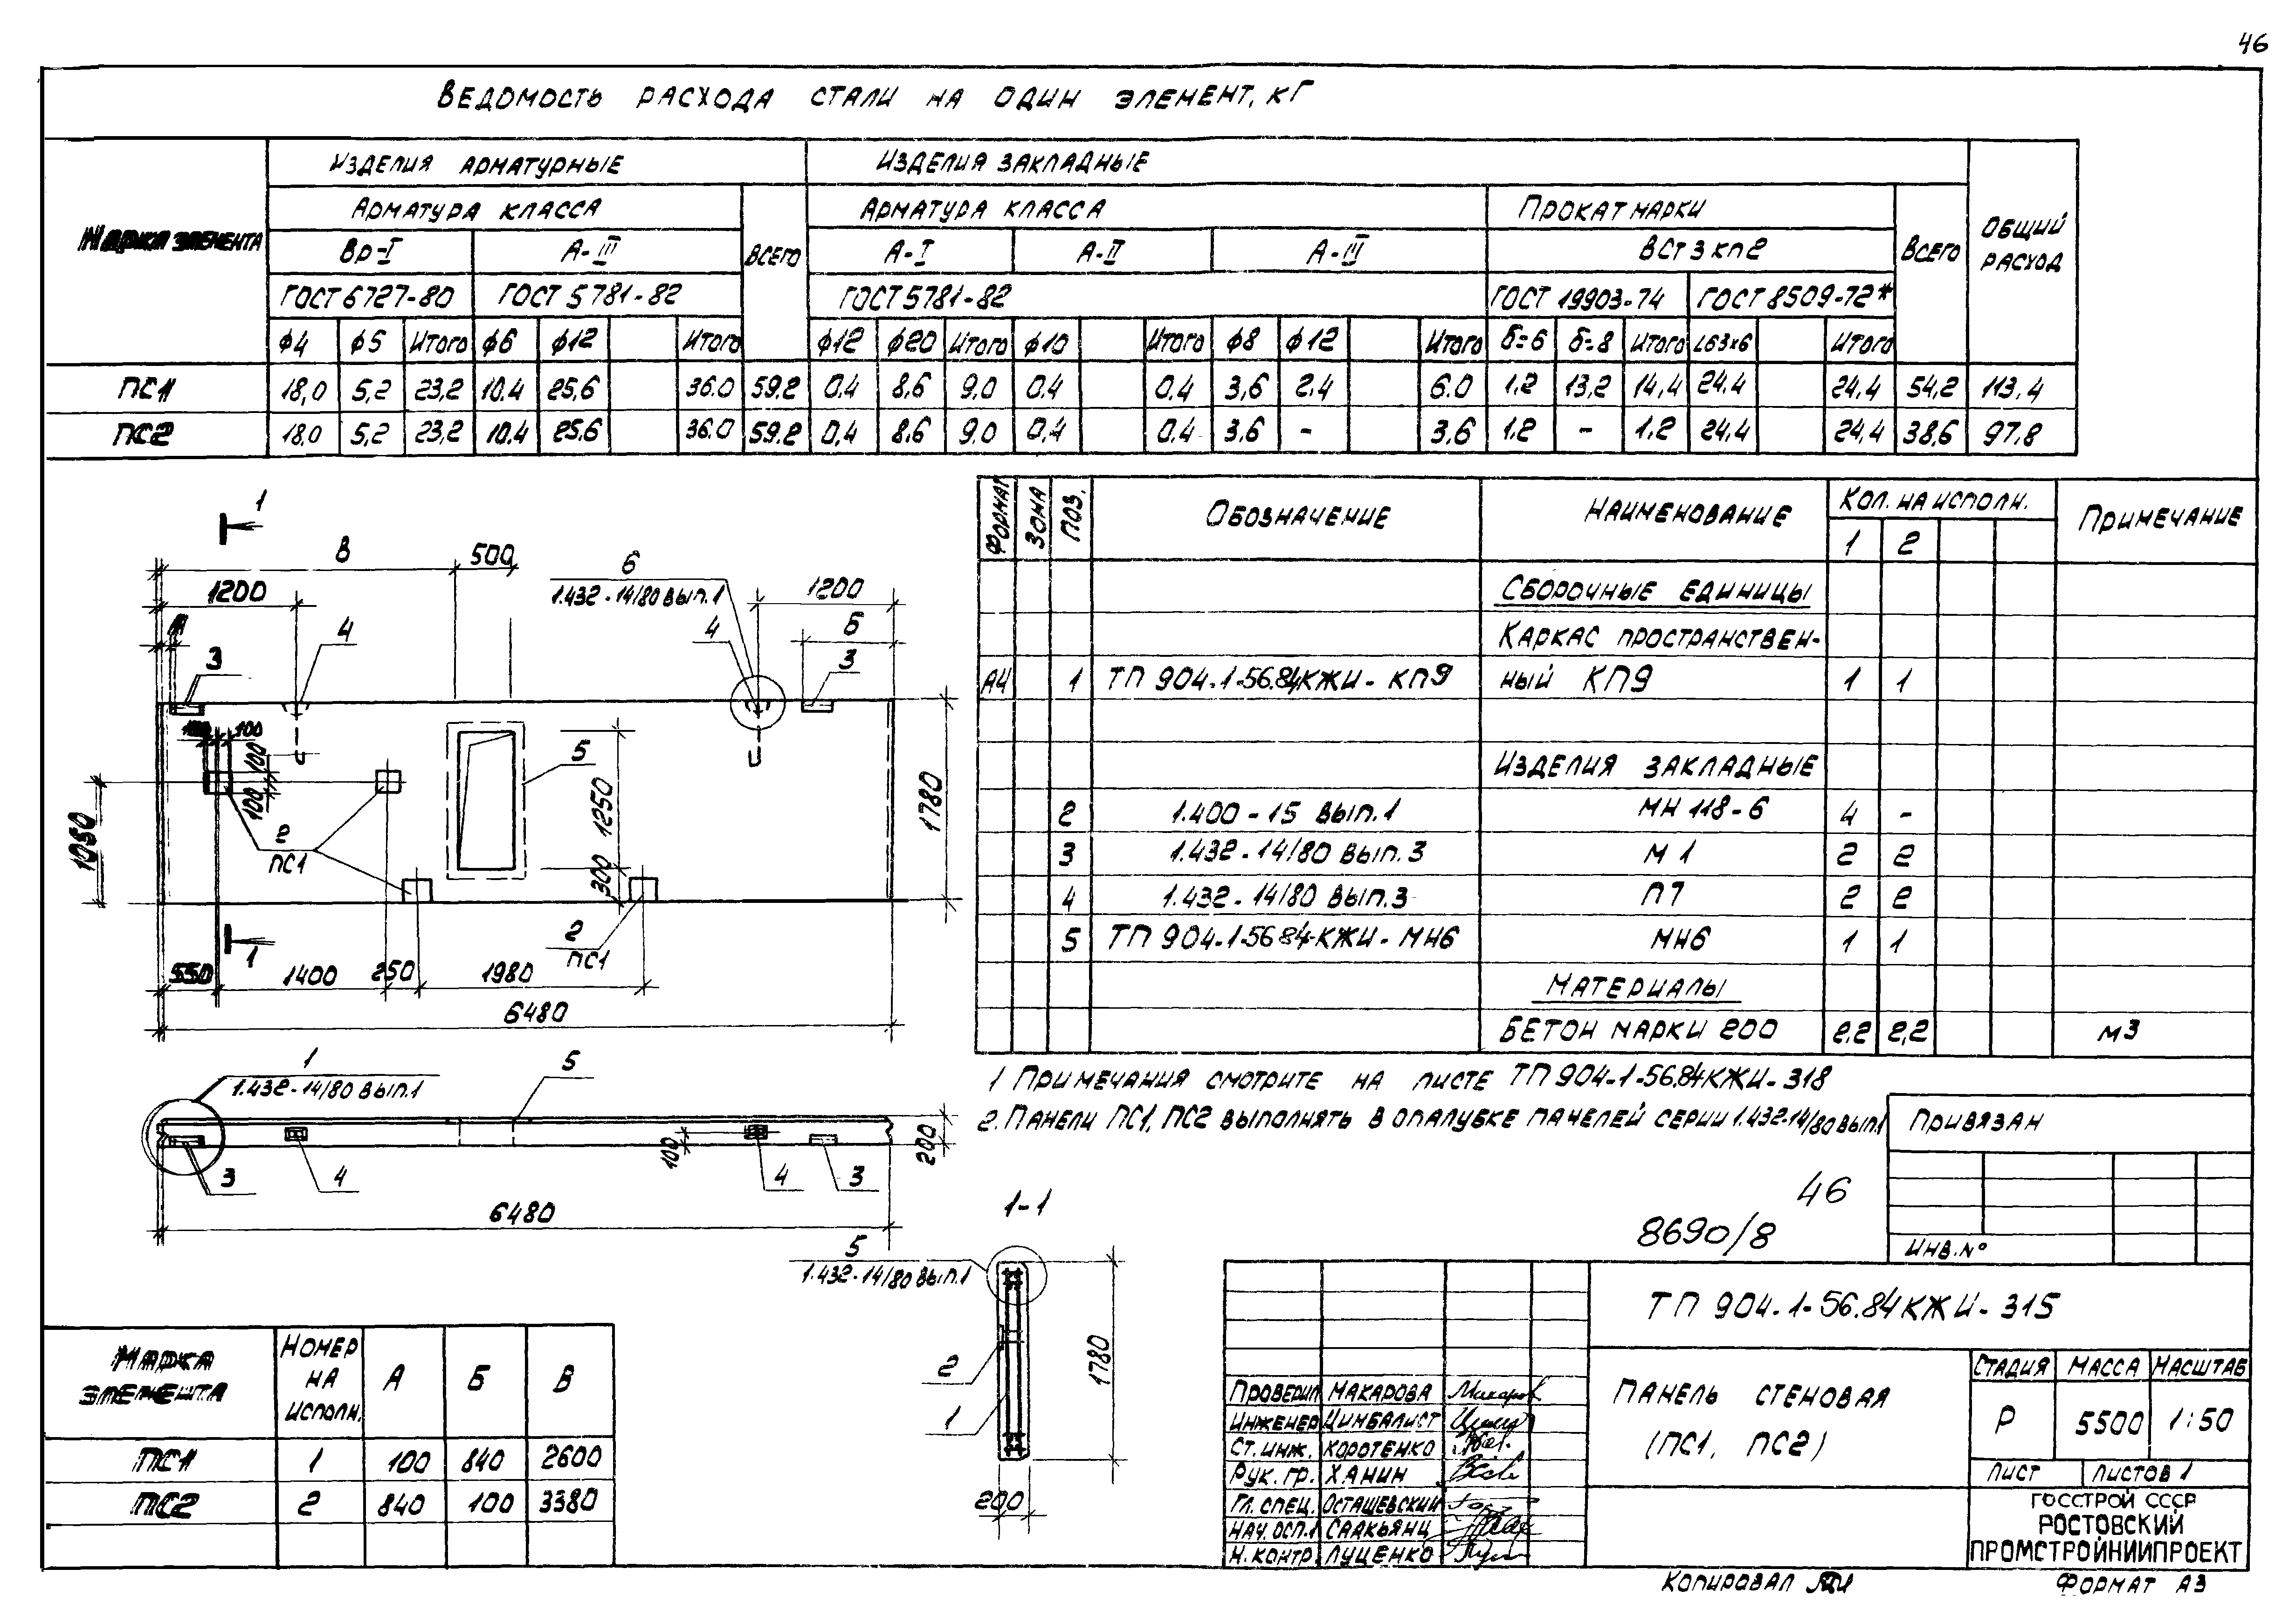 46
Ведомость расхода стали на один элемент, кг
Марка элемента
Изделия арматурные
Изделия закладные
Общий расход
Арматура класса
Всего
Арматура класса
Прокат марки
Всего
Вр-I
А-III
А-I
А-II
А-III
ВСт3кп2
ГОСТ 6727-80
ГОСТ 5781-82
ГОСТ 5781-82
ГОСТ 19903-74
ГОСТ 8509-72*
ф4 ф5 Итого ф6 ф12 Итого ф12 ф20 Итого ф10 Итого ф8 ф12 Итого δ=6 δ=8 Итого L63х6 Итого
ПС1 18,0 5,2 23,2 10.4 25,6 36.0 59.2 0,4 8,6 9.0 0.4 0.4 3,6 2.4 6.0 1,2 13,2 14,4 24.4 24,4 54,2 113,4
ПС2 18.0 5,2 23,2 10.4 25.6 36.0 59.2 0,4 8,6 9.0 0,4 0.4 3.6 - 3,6 1.2 - 1.2 24.4 24,4 38,6 97,8
1
В
500
1200
6
1.432-14/80 вып.1
1200
А
4
4
Б
3
3
100
100
100
100
5
1250
300
1780
1050
2
ПС1
2
ПС1
1
550
1400
250
1980
6480
1
1.432-14/80 вып.1
5
100
200
3
4
4
3
6480
1-1
5
1.432-14/80 вып.1
2
1
1780
200
Формат
Зона
Поз.
Обозначение
Наименование
Кол. на исполн.
Примечание
1 2
Сборочные единицы
Каркас пространствен-
А4 1 ТП 904-1-56.84КЖИ-КП9 ный КП9 1 1
Изделия закладные
2 1.400-15 вып.1 МН 118-6 4 -
3 1.432-14/80 вып.3 М1 2 2
4 1.432-14/80 вып.3 П7 2 2
5 ТП 904-1-56 84-КЖИ-МН6 МН6 1 1
Материалы
Бетон марки 200 2,2 2,2 м3
1 Примечания смотрите на листе ТП 904-1-56.84КЖИ-318
2. Панели ПС1, ПС2 выполнять в опалубке панелей серии 1.432-14/80 вып.1
Привязан
Инв.№
46
8690/8
Марка элемента
Номер на исполн.
А
Б
В
ПС1 1 100 840 2600
ПС2 2 840 100 3380
ТП 904-1-56.84КЖИ-315
Проверил Макарова
Инженер Цимбалист
Ст.инж. Коротенко
Рук.гр. Ханин
Гл.спец. Осташевский
Нач.осп.1 Саакьянц
Н.контр. Луценко
Панель стеновая
(ПС1, ПС2)
Стадия Масса Масштаб
Р 5500 1:50
Лист Листов 1
ГОССТРОЙ СССР
РОСТОВСКИЙ
ПРОМСТРОЙНИИПРОЕКТ
Копировал
Формат А3